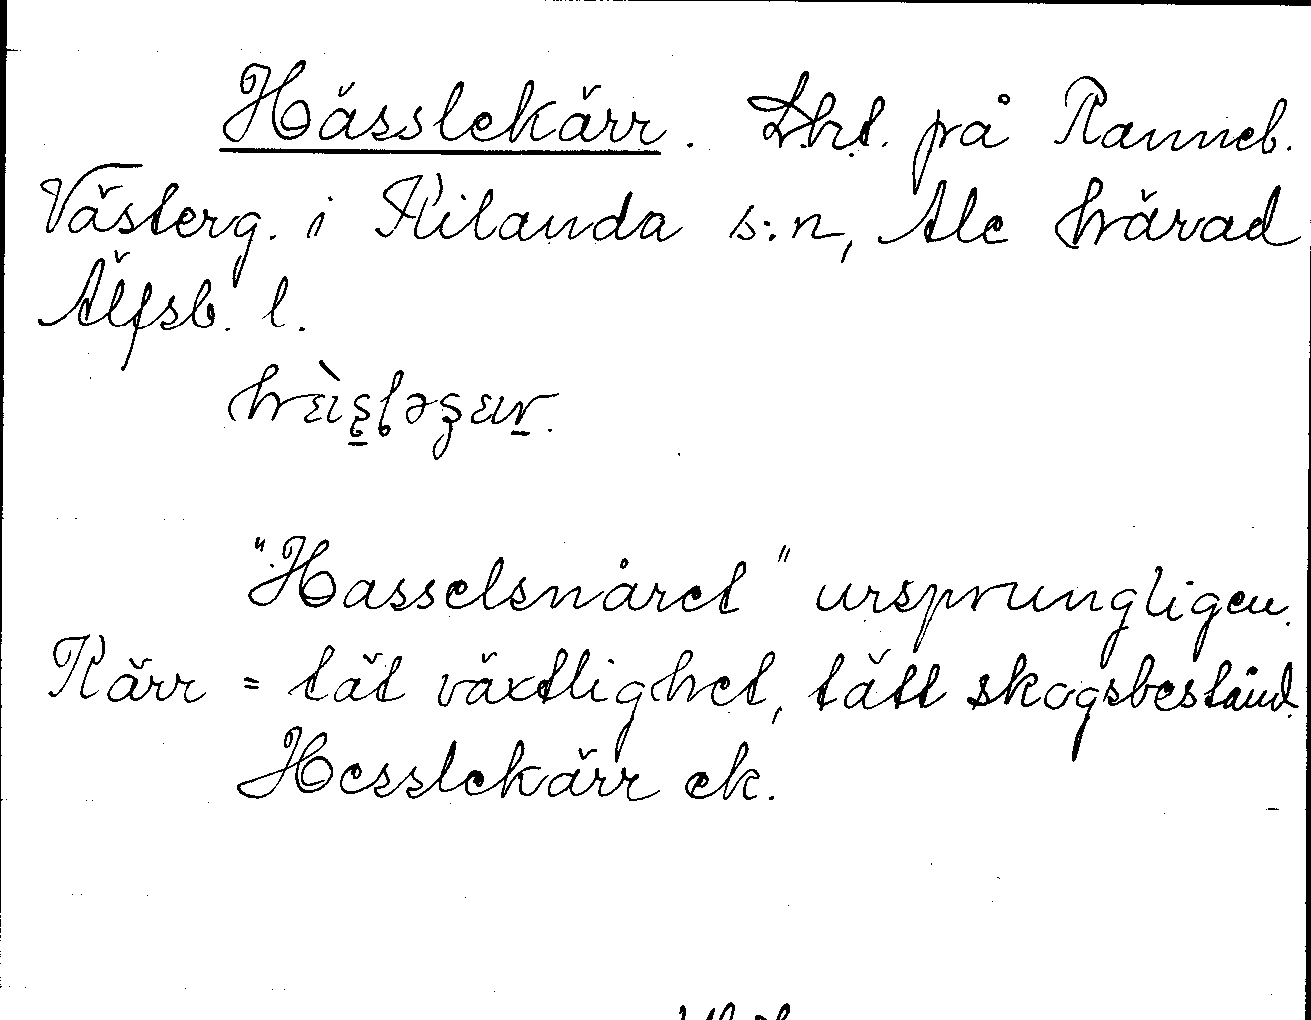 Hässlekärr. Lht. på Ranneb.
Västerg. i Kilanda s:n, Ale härad
Älfsb. l.

"Hasselsnåret" ursprungligen.
Kärr = tät växtlighet, tätt skogsbestånd.
Hesslekärr ek.